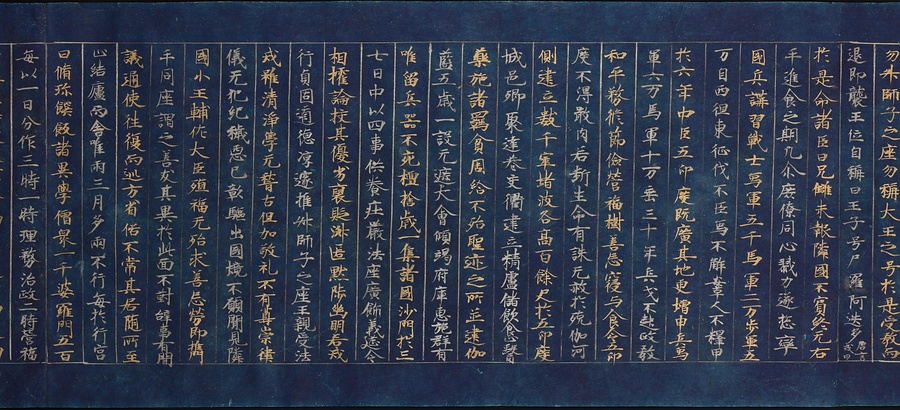 勿升師子之座勿稱大王之号於是受教而
退即襲王位自稱曰王子号尸羅阿迭多唐言戒日
於是命諸臣曰兄讎未報隣國不賓終无右
手進食之期凡尒庶僚同心戮力遂摠率
國兵講習戰士馬軍五千馬軍二万步軍五
万自西徂東征伐不臣馬不解鞌人不釋甲
於六年中臣五印度既廣其地更增甲兵馬
軍六万馬軍十万垂三十年兵戈不起政教
和平務修節儉營福樹善忘寢与食令五印
度不得噉肉若斷生命有誅无赦於殑伽河
側建立數千窣堵波各高百餘尺於五印度
城邑鄉聚達巷交衢建立精廬儲飲食醫
藥施諸羈貧周給不殆聖迹之所並建伽
藍五歲一設无遮大會傾竭府庫惠施群有
唯留兵器不充檀捨歲一集諸國沙門於三
七日中以四事供養莊嚴法座廣飾義筵令
相摧論挍其優劣襃貶淑慝黜陟幽明若戒
行貞固道德淳邃推升師子之座王親受法
戒雖清淨學无稽古但加敬礼示有尊崇律
儀无犯紀穢悳已彰驅出國境不願聞見隣
國小王輔佐大臣殖福无殆求善忘勞即攜
手同座謂之善友其異於此面不對辞事有聞
議通使往復而巡方省俗不常其居隨所至
止結廬而舍唯雨三月多雨不行每於行宮
日脩珎饌飯諸異學僧衆一千婆羅門五百
每以一日分作三時一時理務治政一時營福